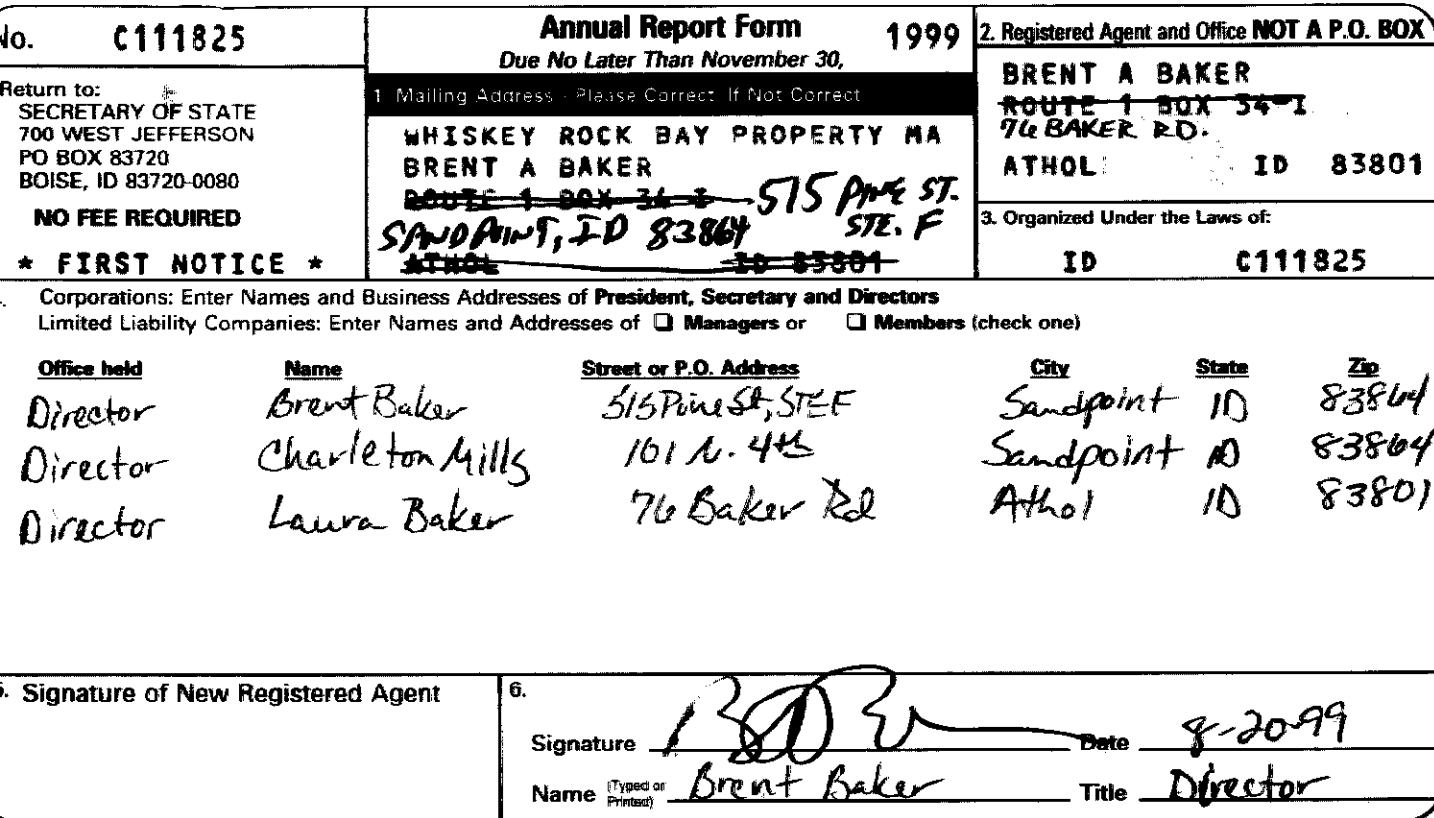 No. C111825
Return to:
SECRETARY OF STATE
700 WEST JEFFERSON
PO BOX 83720
BOISE, ID 83720-0080
NO FEE REQUIRED
* FIRST NOTICE *
Annual Report Form 1999
Due No Later Than November 30,
1 Mailing Address - Please Correct If Not Correct
WHISKEY ROCK BAY PROPERTY MA
BRENT A BAKER
ROUTE 1 BOX 34-I 515 PINE ST.
SANDPOINT, ID 83864 STE. F
ATHOL ID 83801
2. Registered Agent and Office NOT A P.O. BOX
BRENT A BAKER
ROUTE 1 BOX 34-I
76 BAKER RD.
ATHOL ID 83801
3. Organized Under the Laws of:
ID C111825
Corporations: Enter Names and Business Addresses of President, Secretary and Directors
Limited Liability Companies: Enter Names and Addresses of ❑ Managers or ❑ Members (check one)
Office held Name Street or P.O. Address City State Zip
Director Brent Baker 515 Pine St, STE F Sandpoint ID 83864
Director Charleton Mills 101 N. 4th Sandpoint ID 83864
Director Laura Baker 76 Baker Rd Athol ID 83801
5. Signature of New Registered Agent
6.
Signature Date 8-20-99
Name (Typed or Printed) Brent Baker Title Director